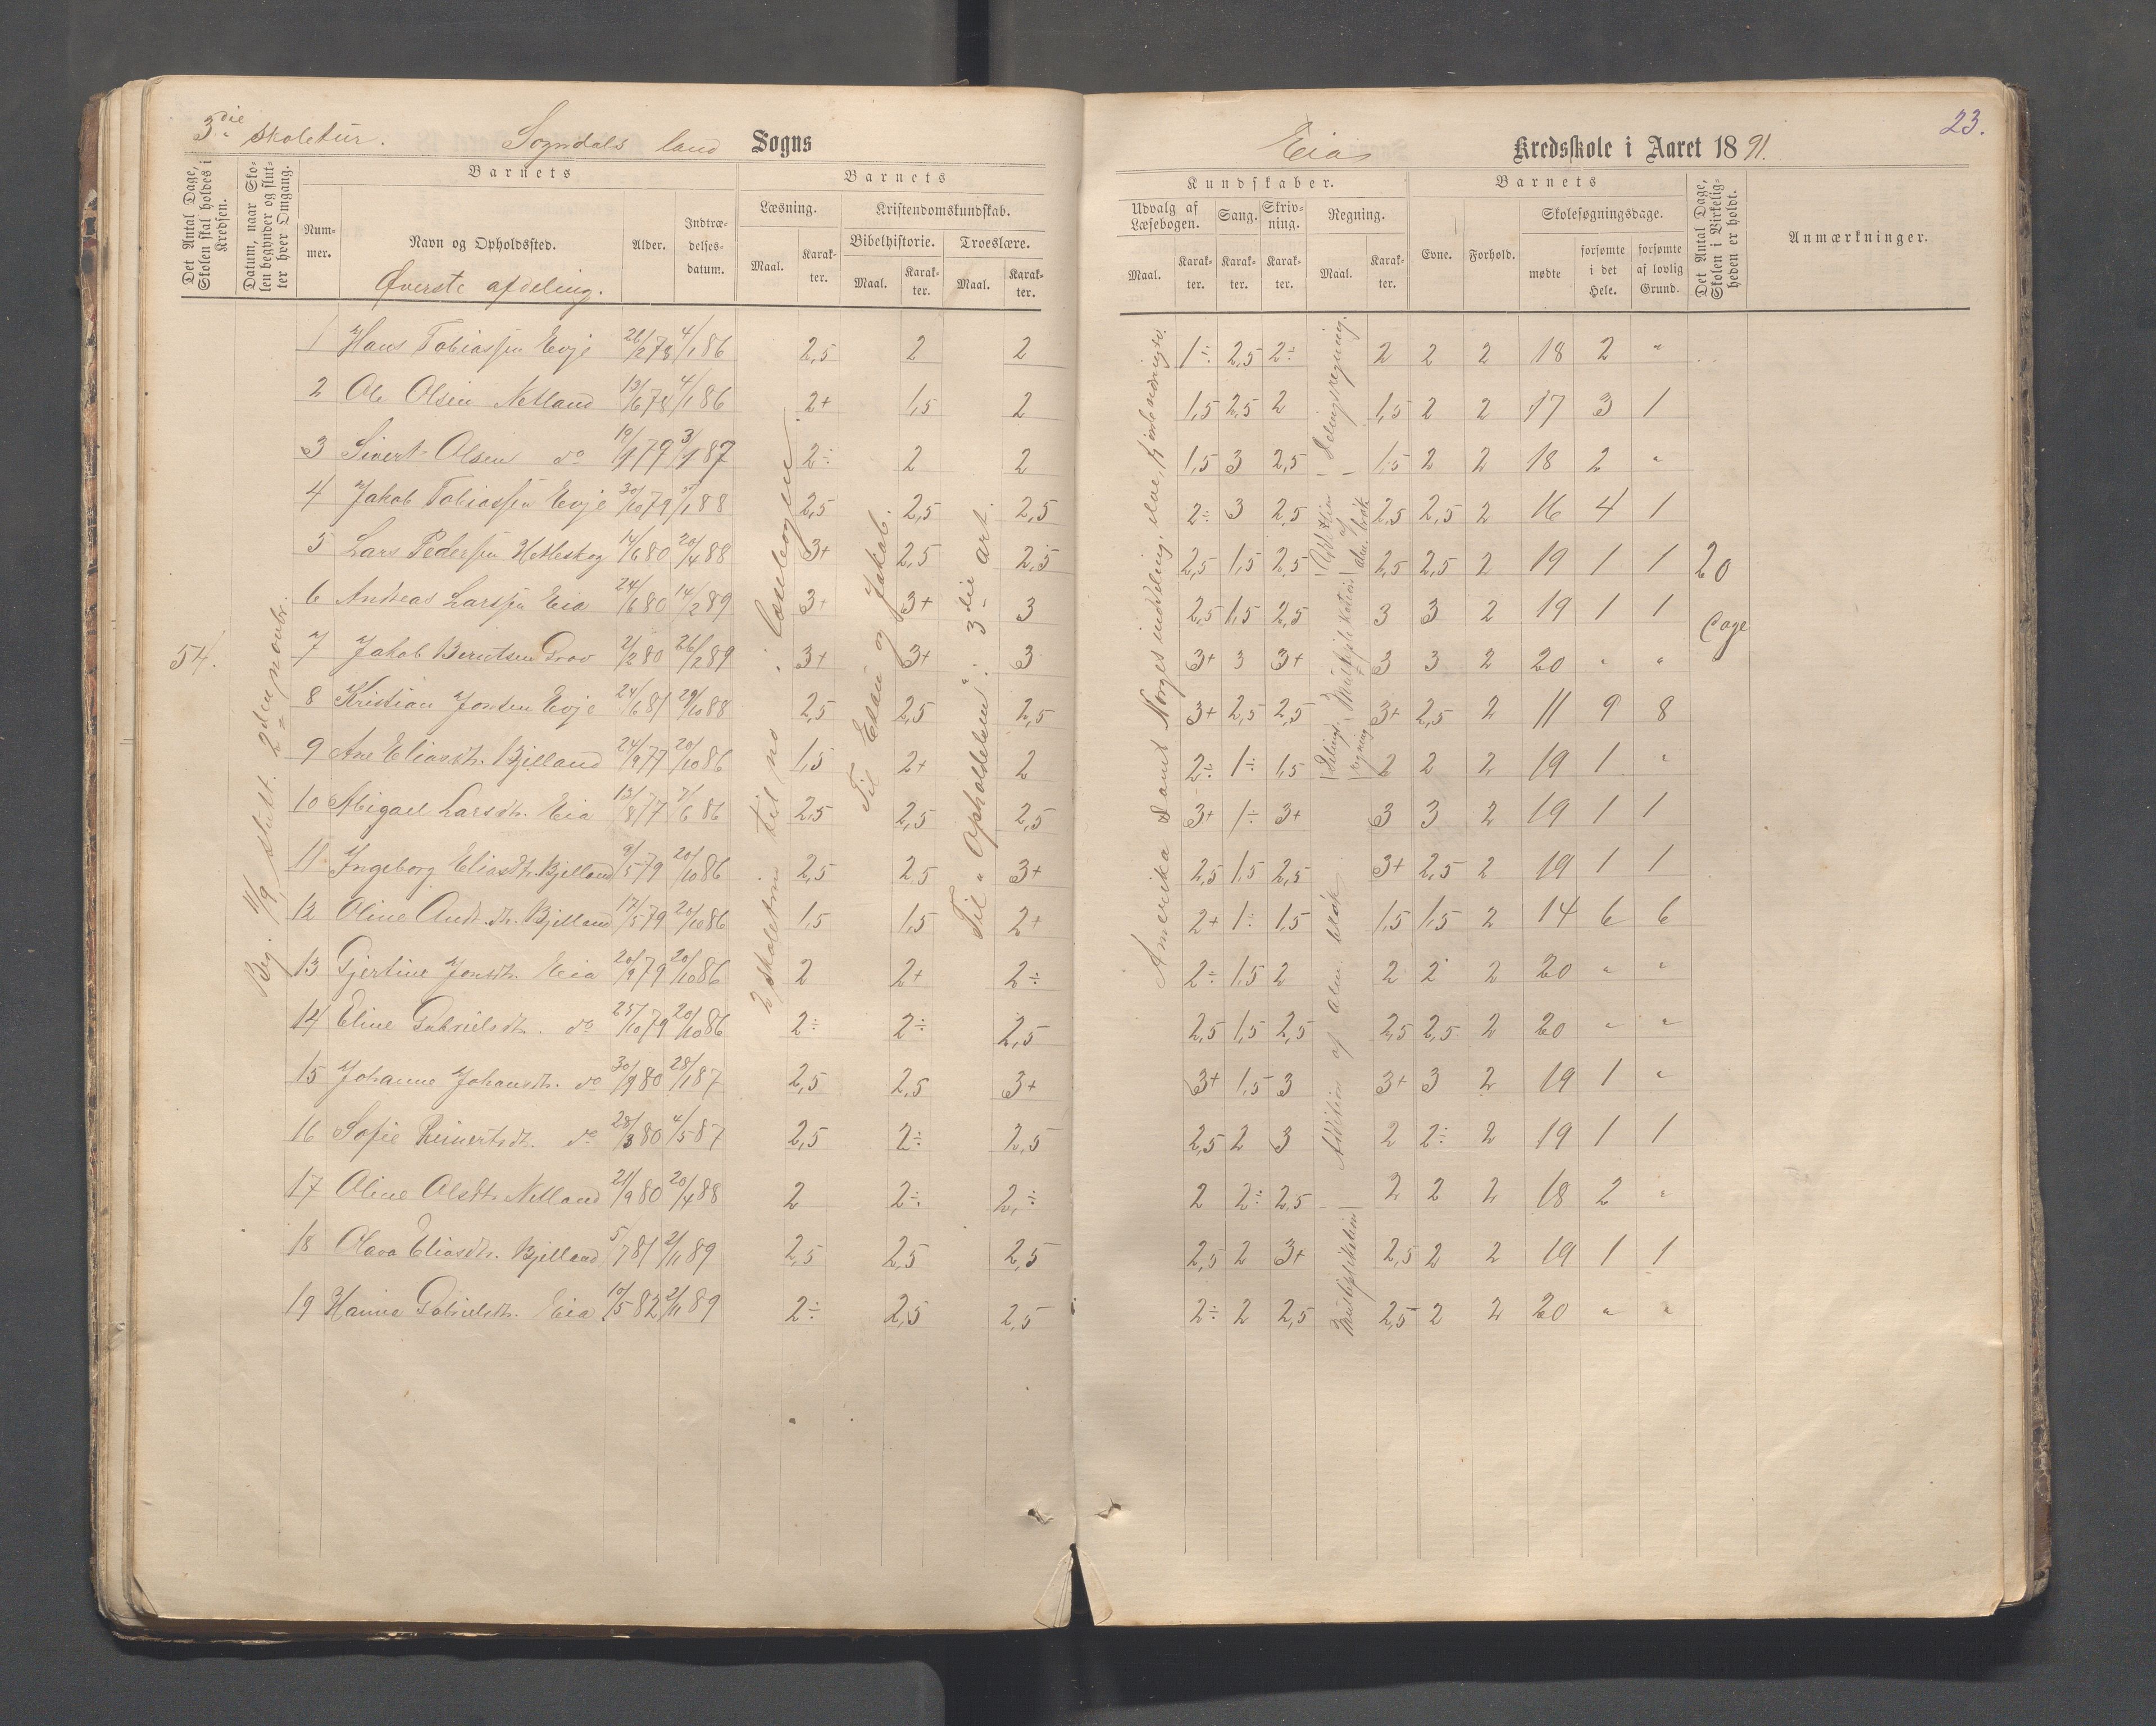 3die skoletur. Sogndals land Sogns
Eia Kredsskole i Aaret 1891.
23.
Det Antal Dage, Skolen skal holdes i Kredsen.
Datum, naar Skolen begynder og slutter hver Omgang.
Barnets
Nummer.
Navn og Opholdssted.
Alder.
Indtrædelsesdatum.
Barnets
Læsning.
Maal.
Karakter.
Kristendomskundskab.
Bibelhistorie.
Maal.
Karakter.
Troeslære.
Maal.
Karakter.
Kundskaber.
Udvalg af Læsebogen.
Maal.
Karakter.
Sang.
Karakter.
Skrivning.
Karakter.
Regning.
Maal.
Karakter.
Barnets
Evne.
Forhold.
Skolesøgningsdage.
mødte
forsømte i det Hele.
forsømte af lovlig Grund.
Det Antal Dage, Skolen i Virkeligheden er holdt.
Anmærkninger.
Øverste afdeling.
1 Hans Tobiassen Evje 26/2 78 4/1 86 2,5 2 2 1÷ 2,5 2÷ 2 2 2 18 2 "
2 Ole Olsen Netland 13/6 78 4/1 86 2+ 1,5 2 1,5 2,5 2 1,5 2 2 17 3 1
3 Sivert Olsen do 19/1 79 3/1 87 2÷ 2 2 1,5 3 2,5 1,5 2 2 18 2 "
4 Jakob Tobiassen Evje 30/10 79 /1 88 2,5 2,5 2,5 2÷ 3 2,5 2,5 2,5 2 16 4 1
5 Lars Pedersen Hetleskog 14/6 80 20/4 88 3+ 2,5 2,5 2,5 1,5 2,5 2,5 2,5 2 19 1 1
6 Andreas Larsen Eia 24/6 80 14/2 89 3+ 3+ 3 2,5 1,5 2,5 3 3 2 19 1 1
7 Jakob Berntsen Grov 2/2 80 26/2 89 3+ 3+ 3 3+ 3 3+ 3 3 2 20 " "
8 Kristian Jonsen Evje 24/6 81 29/10 88 2,5 2,5 2,5 3+ 2,5 2,5 3+ 2,5 2 11 9 8
9 Ane Eliasdtr. Bjelland 24/9 77 20/10 86 1,5 2+ 2 2÷ 1÷ 1,5 2 2 2 19 1 "
10 Abigael Larsdtr. Eia 13/8 77 7/6 86 2,5 2,5 2,5 3+ 1÷ 3+ 3 3 2 19 1 1
11 Ingeborg Eliasdtr. Bjelland 9/5 79 20/10 86 2,5 2,5 3+ 2,5 1,5 2,5 3+ 2,5 2 19 1 1
12 Oline Andr.dtr. Bjelland 17/5 79 20/10 86 1,5 1,5 2+ 2+ 1÷ 1,5 1,5 1,5 2 14 6 6
13 Gjertine Jonsdtr. Eia 20/9 79 20/10 86 2 2+ 2÷ 2÷ 1,5 2 2 2 2 20 " "
14 Eline Gabrielsdtr. do 25/10 79 20/10 86 2÷ 2÷ 2,5 2,5 1,5 2,5 2,5 2,5 2 20 " "
15 Johanne Johansdtr. do 30/9 80 28/1 87 2,5 2,5 3+ 3+ 1,5 3 3+ 3 2 19 1 "
16 Sofie Reinertsdtr. do 28/3 80 4/5 87 2,5 2÷ 2,5 2,5 2 3 2 2÷ 2 19 1 1
17 Oline Olsdtr. Netland 21/9 80 20/4 88 2 2÷ 2÷ 2 2÷ 2,5 2 2 2 18 2 "
18 Olava Eliasdtr. Bjelland 5/7 81 2/11 89 2,5 2,5 2,5 2,5 2 3+ 2,5 2 2 19 1 1
19 Hanna Gabrielsdtr. Eia 10/5 82 2/11 89 2÷ 2,5 2,5 2÷ 2 2,5 2,5 2 2 20 " "
54.
Beg. 11/9, slutt. 2den novbr.
2 skoletrin til no i læsebogen.
Til Esau og Jakob.
Til "Opholdelsen" i 3die art.
Amerika samt Norges inddeling
Delingsregning.
Addition af alm. brøk
Multiplikation
Delingsregning
Addition af alm. brøk
Multiplikation
20
Dage